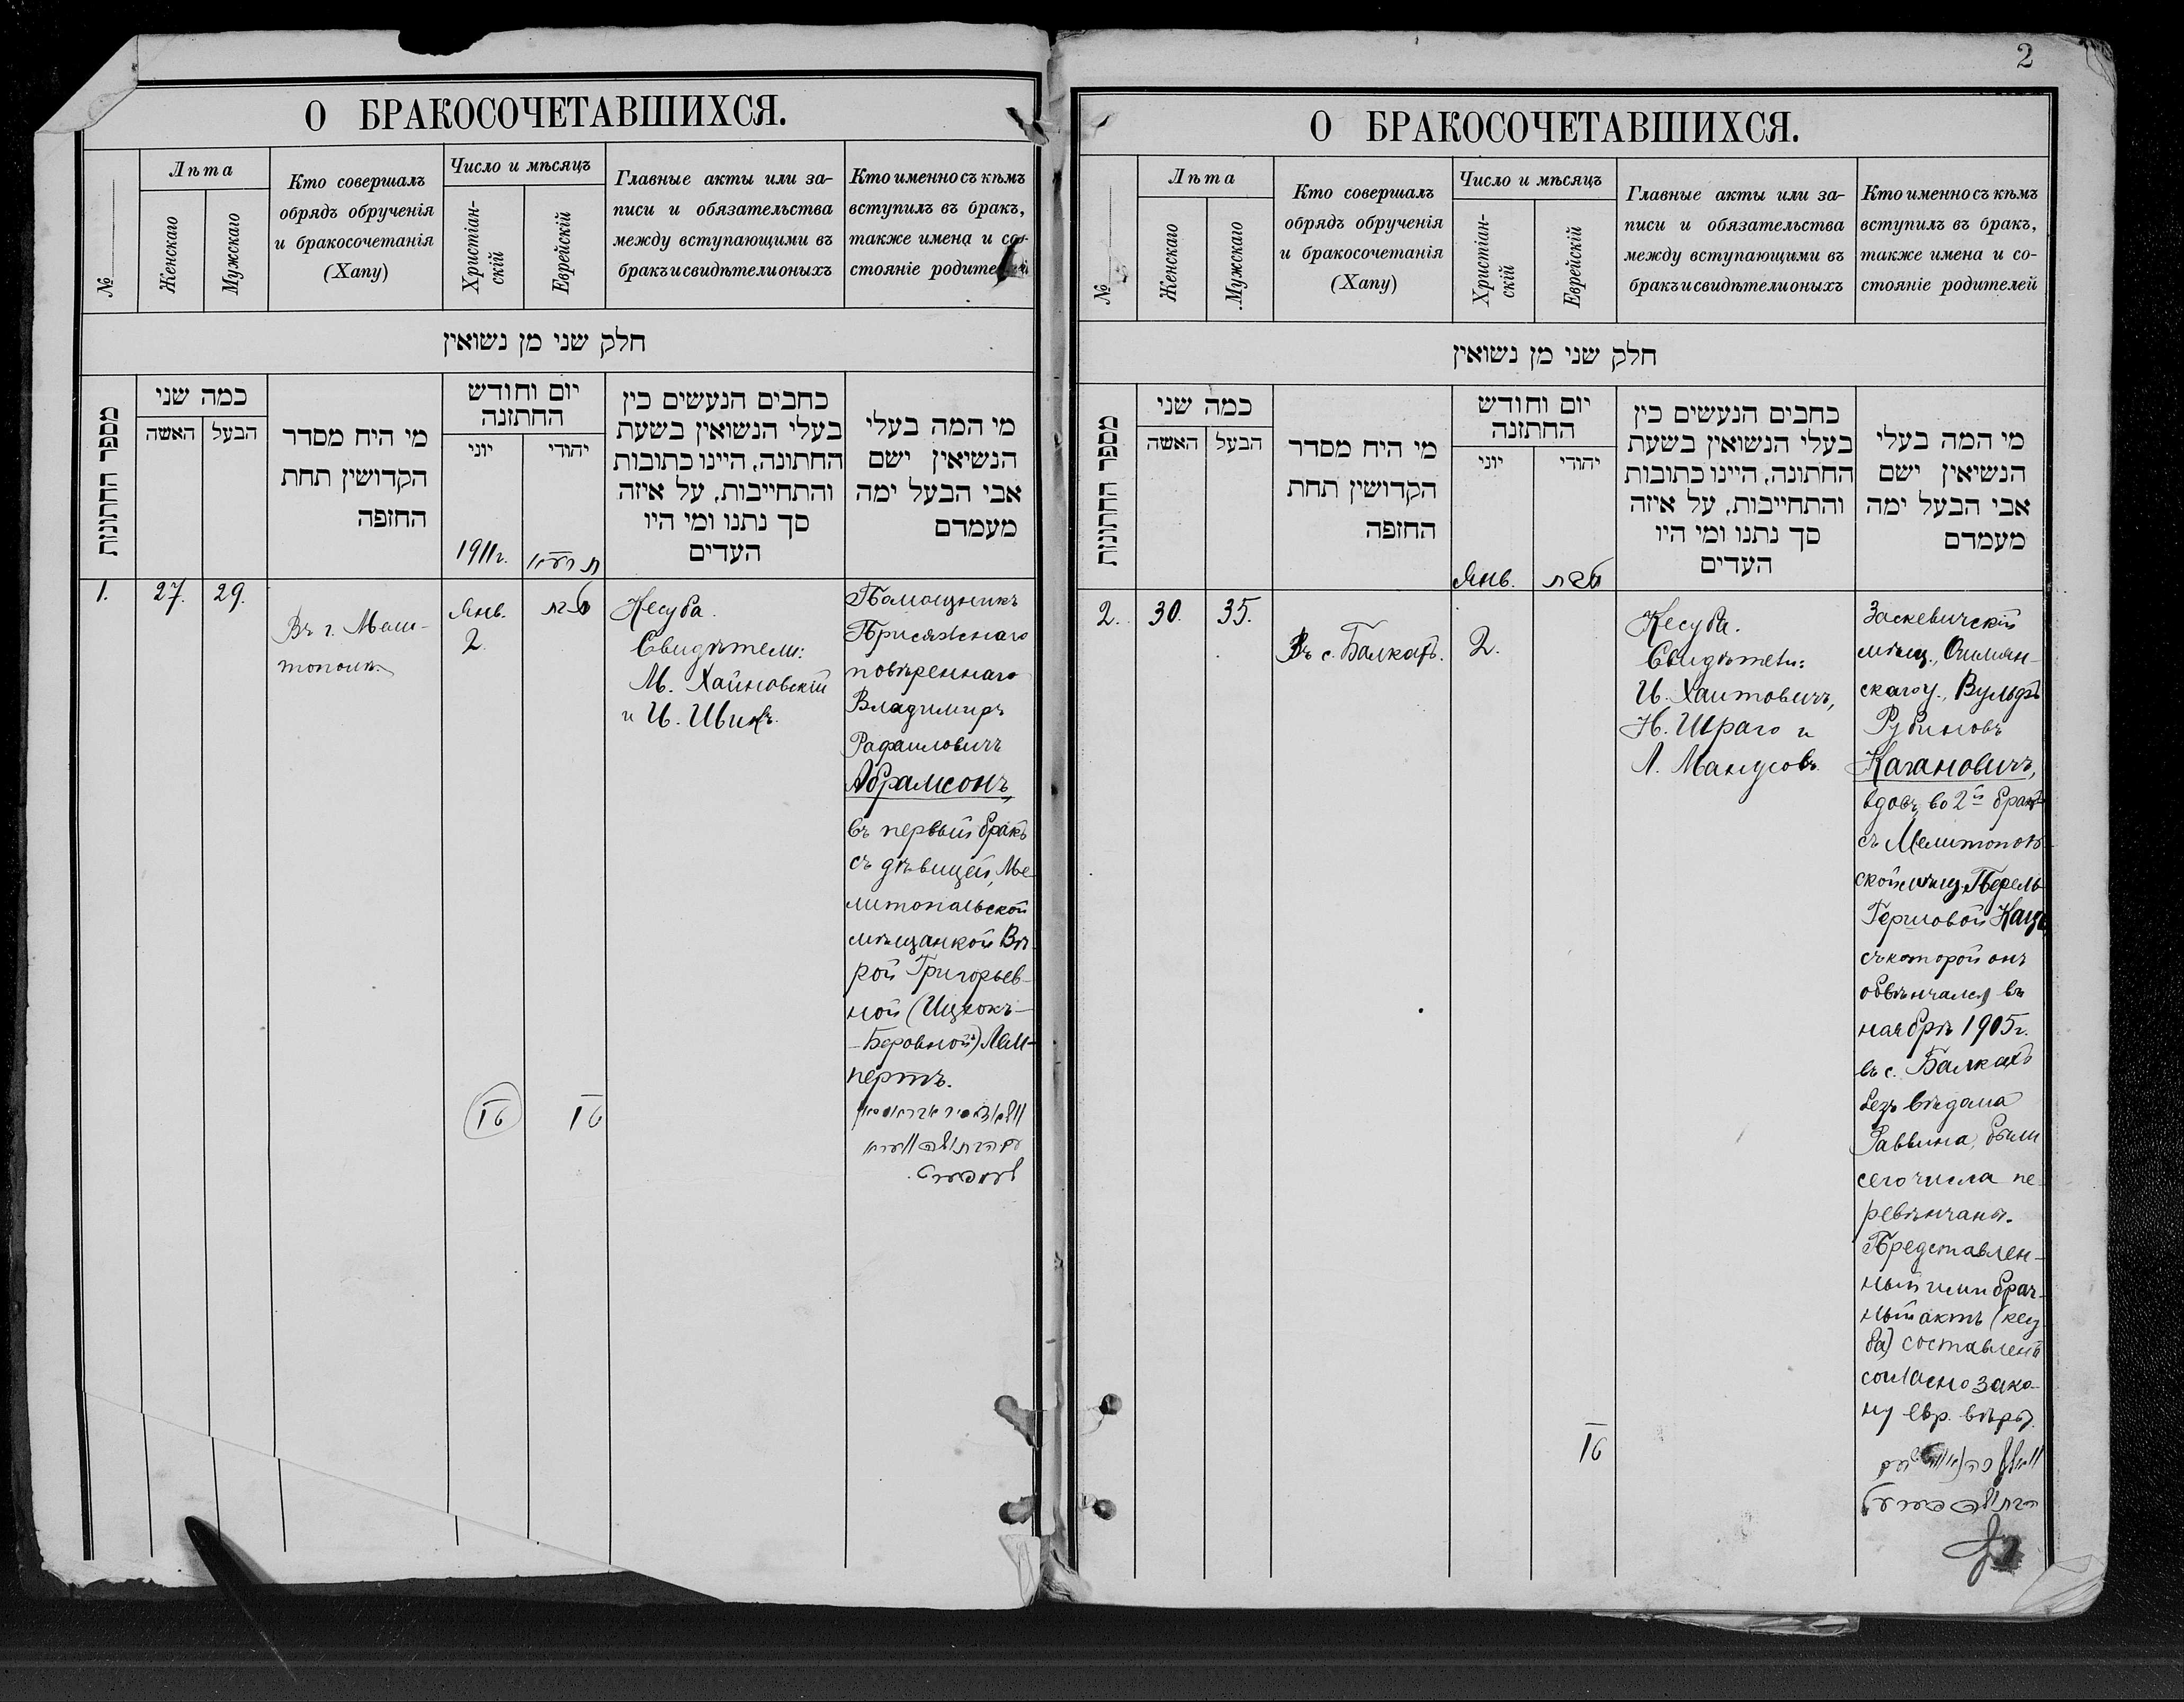 О БРАКОСОЧЕТАВШИХСЯ.
№
Лѣта
Женскаго
Мужскаго
Кто совершалъ
обрядъ обрученія
и бракосочетанія
(Хапу)
Число и мѣсяцъ
Христіан-
скій
Еврейскій
Главные акты или за-
писи и обязательства
между вступающими въ
бракъ и свидѣтели оныхъ
Кто именно съ кѣмъ
вступилъ въ бракъ,
также имена и со-
стояніе родителей
חלק שני מן נשואין
מספר החתונות
כמה שני
האשה
הבעל
מי היח מסדר
הקדושין תחת
החזפה
יום וחודש
החתזנה
יוני
יהודי
1911г.
כחבים הנעשים כין
בעלי הנשואין בשעת
החתונה, היינו כתובות
והתחייבות, על איזה
סך נתנו ומי היו
העדים
מי המה בעלי
הנשיאין ישם
אבי הבעל ימה
מעמדם
1.
27.
29.
Въ г. Мели-
тополѣ
Янв.
2.
טבת
Кесуба.
Свидѣтели:
М. Хайновскій
и И. Швихъ.
Помощникъ
Присяжнаго
повѣреннаго
Владимиръ
Рафаиловичъ
Абрамсонъ,
въ первый бракъ
съ дѣвицей, Ме-
литопольской
мѣщанкой Вѣ-
рой Григорьев-
ной (Ицхокъ-
-Беровной) Лам-
пертъ.
טו
טו
2
О БРАКОСОЧЕТАВШИХСЯ.
№
Лѣта
Женскаго
Мужскаго
Кто совершалъ
обрядъ обрученія
и бракосочетанія
(Хапу)
Число и мѣсяцъ
Христіан-
скій
Еврейскій
Главные акты или за-
писи и обязательства
между вступающими въ
бракъ и свидѣтели оныхъ
Кто именно съ кѣмъ
вступилъ въ бракъ,
также имена и со-
стояніе родителей
חלק שני מן נשואין
מספר החתונות
כמה שני
האשה
הבעל
מי היח מסדר
הקדושין תחת
החזפה
יום וחודש
החתזנה
יוני
יהודי
Янв.
טבת
כחבים הנעשים כין
בעלי הנשואין בשעת
החתונה, היינו כתובות
והתחייבות, על איזה
סך נתנו ומי היו
העדים
מי המה בעלי
הנשיאין ישם
אבי הבעל ימה
מעמדם
2.
30.
35.
Въ с. Балкахъ.
2.
Кесуба.
Свидѣтели:
И. Хаитовичъ,
Н. Шраго и
Л. Манусовъ.
Заскевичскій
мѣщ., Ошмян-
скаго у., Вульфъ
Рубиновъ
Кагановичъ,
вдовъ, во 2й бракъ
съ Мелитополь-
ской мѣщ. Перель
Гершовой Кацъ
съ которой онъ
обвѣнчался въ
ноябрѣ 1905г.
въ с. Балкахъ
безъ вѣдома
Раввина, были
сего числа пе-
ревѣнчаны.
Представлен-
ный ими брач-
ный актъ (кесу-
ба) составленъ
согласно зако-
ну евр. вѣры.
טו